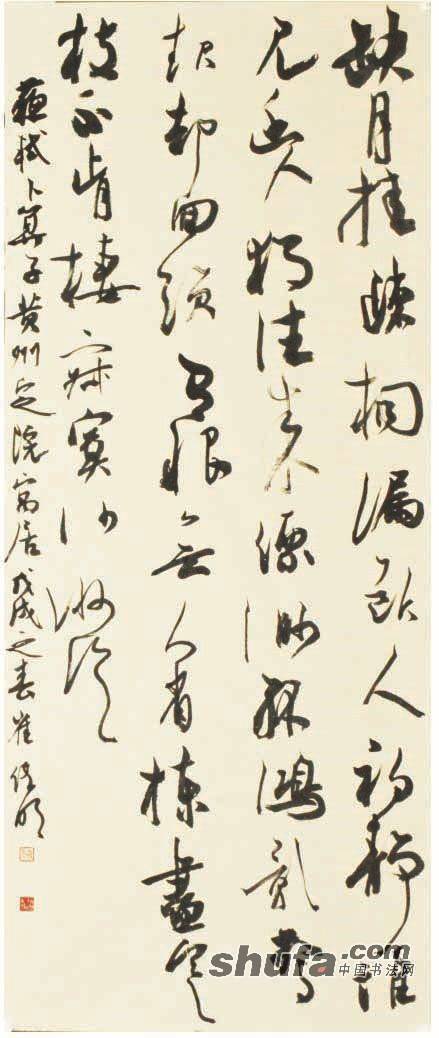 缺月挂疎桐漏断人初静谁
见幽人独往来缥缈孤鸿影驚
起却回頭有恨無人省揀盡寒
枝不肯棲寂寞沙洲冷
蘇軾卜算子黄州定院寓居戊戌之春崔
shufa.com
中国书法网